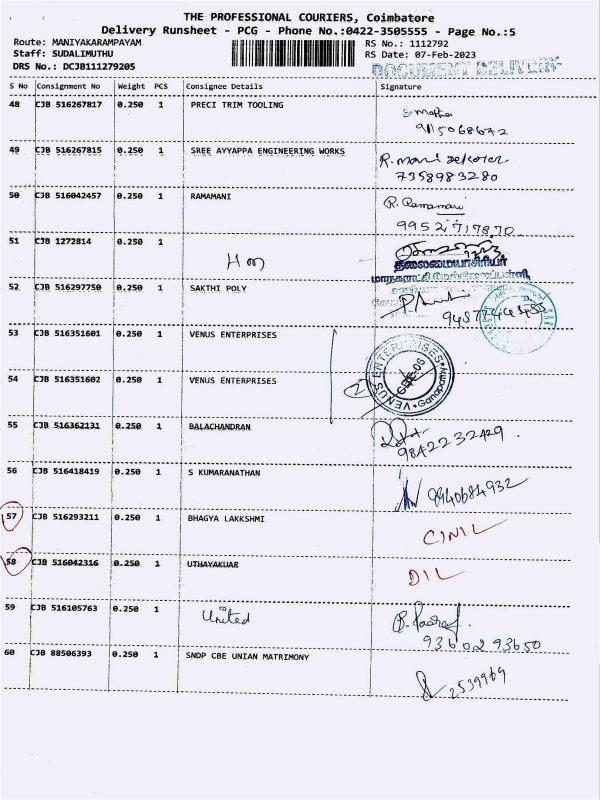 THE PROFESSIONAL COURIERS, Coimbatore
Delivery Runsheet - PCG - Phone No.:0422-3505555 - Page No.:5
Route: MANIYAKARAMPAYAM
RS No.: 1112792
Staff: SUDALIMUTHU
RS Date: 07-Feb-2023
DRS No.: DCJB111279205
DOCUMENT DELIVERY
S No Consignment No Weight PCS Consignee Details Signature
48 CJB 516267817 0.250 1 PRECI TRIM TOOLING
9115068672
49 CJB 516267815 0.250 1 SREE AYYAPPA ENGINEERING WORKS
7358983280
50 CJB 516042457 0.250 1 RAMAMANI R. Ramamani
9952717870
51 CJB 1272814 0.250 1
H M
தலைமையாசிரியர்
52 CJB 516297750 0.250 1 SAKTHI POLY
53 CJB 516351601 0.250 1 VENUS ENTERPRISES
VENUS ENTERPRISES
CBE-06
Ganapathy
54 CJB 516351602 0.250 1 VENUS ENTERPRISES
55 CJB 516362131 0.250 1 BALACHANDRAN
9842232429.
56 CJB 516418419 0.250 1 S KUMARANATHAN
9940684932
57 CJB 516293211 0.250 1 BHAGYA LAKKSHMI
CINIL
58 CJB 516042316 0.250 1 UTHAYAKUAR
DIL
59 CJB 516105763 0.250 1 United
9360293650
60 CJB 88506393 0.250 1 SNDP CBE UNIAN MATRIMONY
2539969